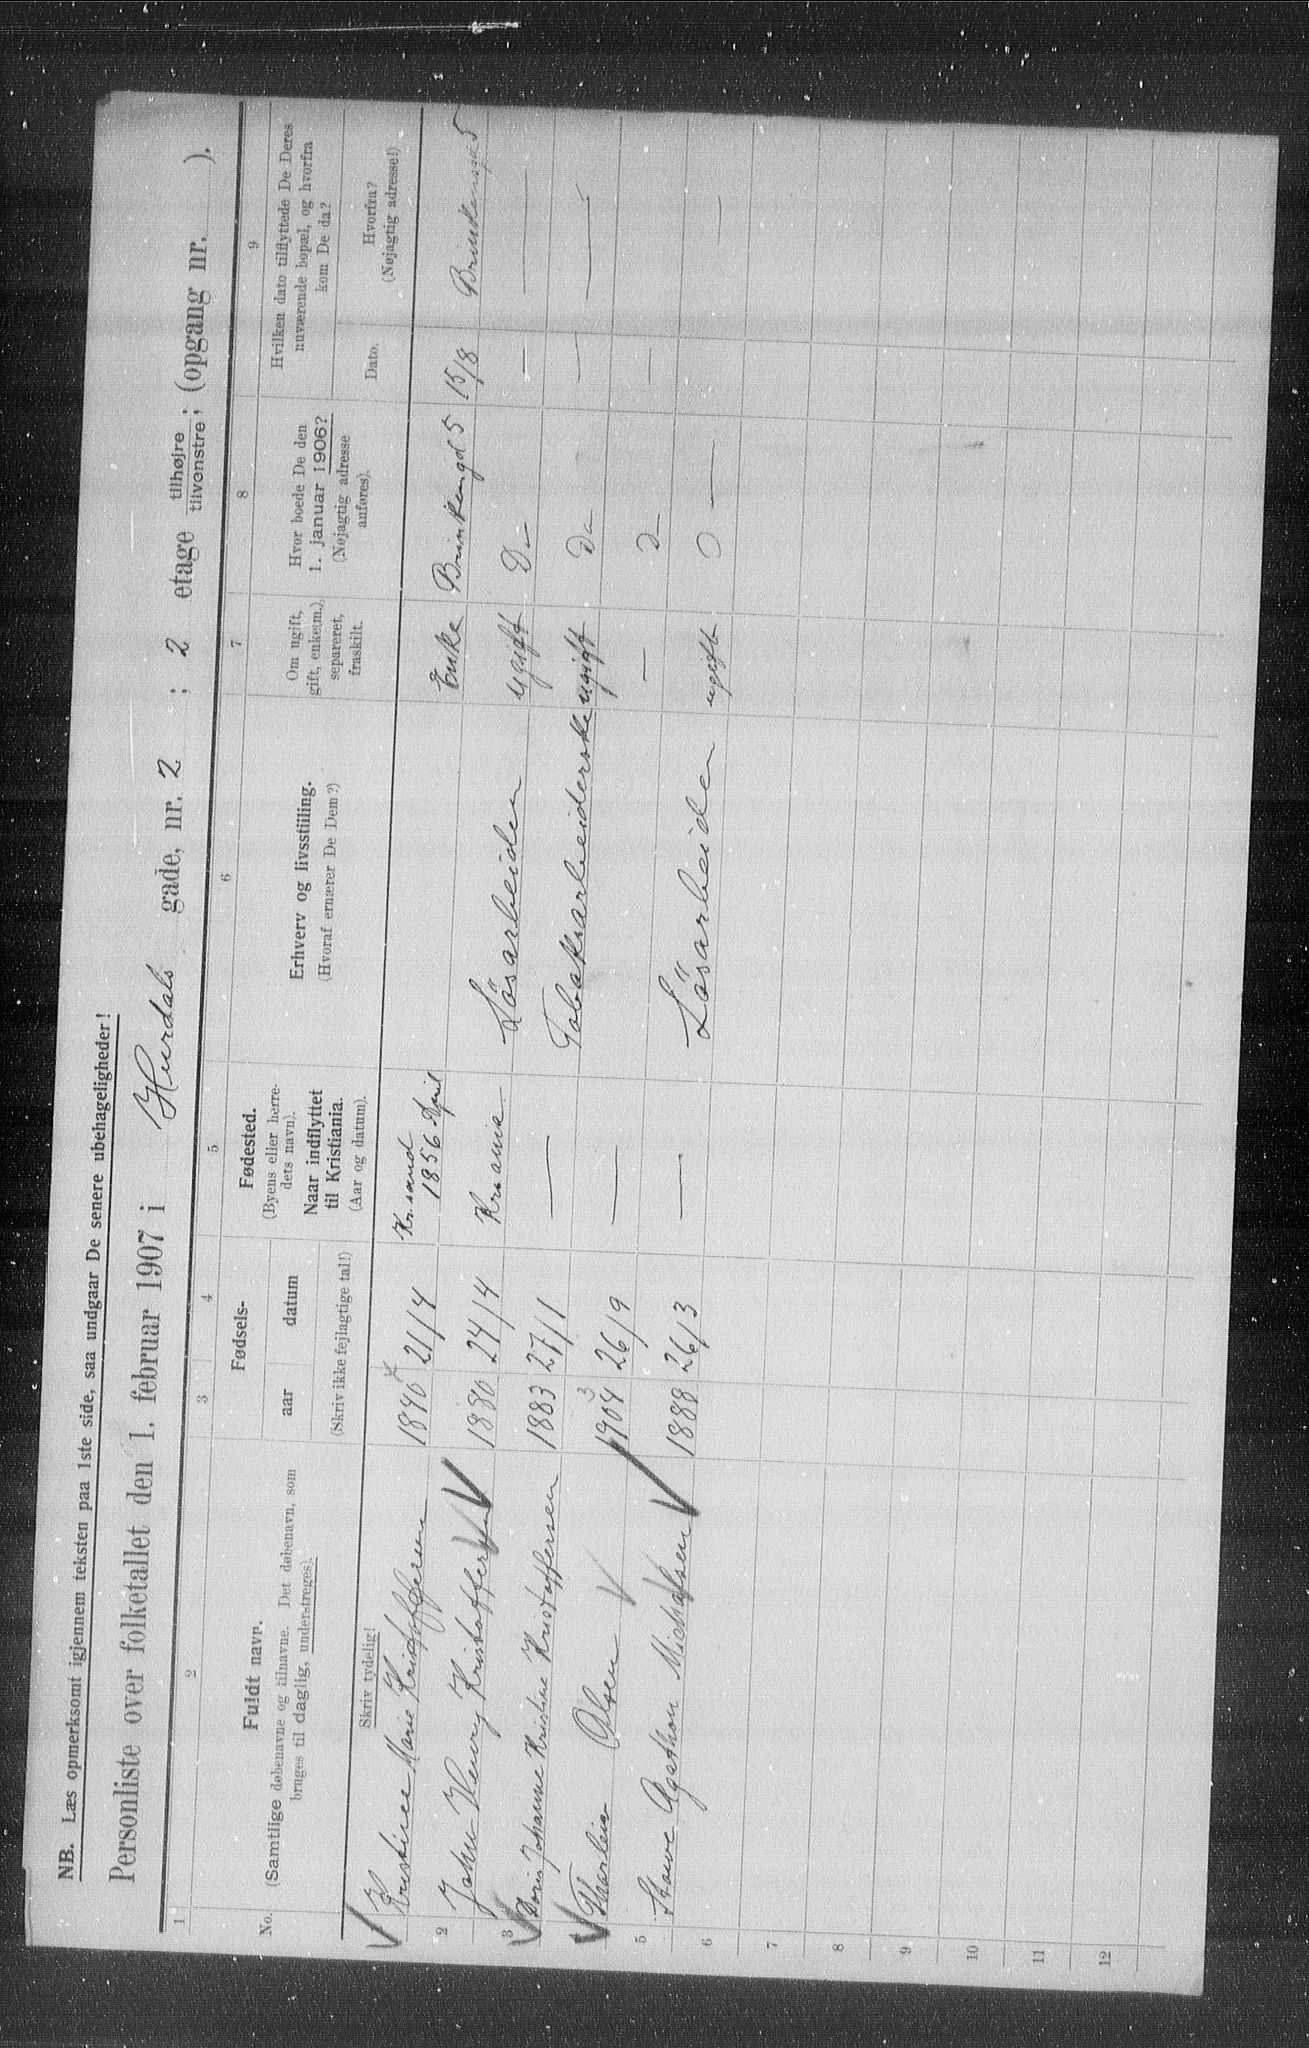 NB. Læs opmerksomt igjennem teksten paa 1ste side, saa undgaar De senere ubehageligheder!
Personliste over folketallet den 1. februar 1907 i Hurdals gade, nr. 2 ; 2 etage tilhøjre tilvenstre; (opgang nr. ).
1 2 3 4 5 6 7 8 9
No.
Fuldt navn.
(Samtlige døbenavne og tilnavne. Det døbenavn, som
bruges til daglig, understreges).
Skriv tydelig!
Fødsels-
aar datum
(Skriv ikke fejlagtige tal!)
Fødested.
(Byens eller herre-
dets navn).
Naar indflyttet
til Kristiania.
(Aar og datum).
Erhverv og livsstilling.
(Hvoraf ernærer De Dem?)
Om ugift,
gift, enke(m.),
separeret,
fraskilt.
Hvor boede De den
1. januar 1906?
(Nøjagtig adresse
anføres).
Hvilken dato tilflyttede De Deres
nuværende bopæl, og hvorfra
kom De da?
Dato.
Hvorfra?
(Nøjagtig adresse!)
Marie Kristoffersen 1840 21/4 Kr.sand 1856 April Enke Brinkengd 5 15/8 5
2 John Henry Kristoffersen 1880 24/4 Krania Lösarbeider ugift Do —
3 Johanne Kristine Kristoffersen 1883 27/1 — Tobaksarbeiderske ugift Do — —
Thorleif Olsen 26/9 — — D — —
5 Agathon 1888 26/3 — Lösarbeider ugift —
6
7
8
9
10
11
12